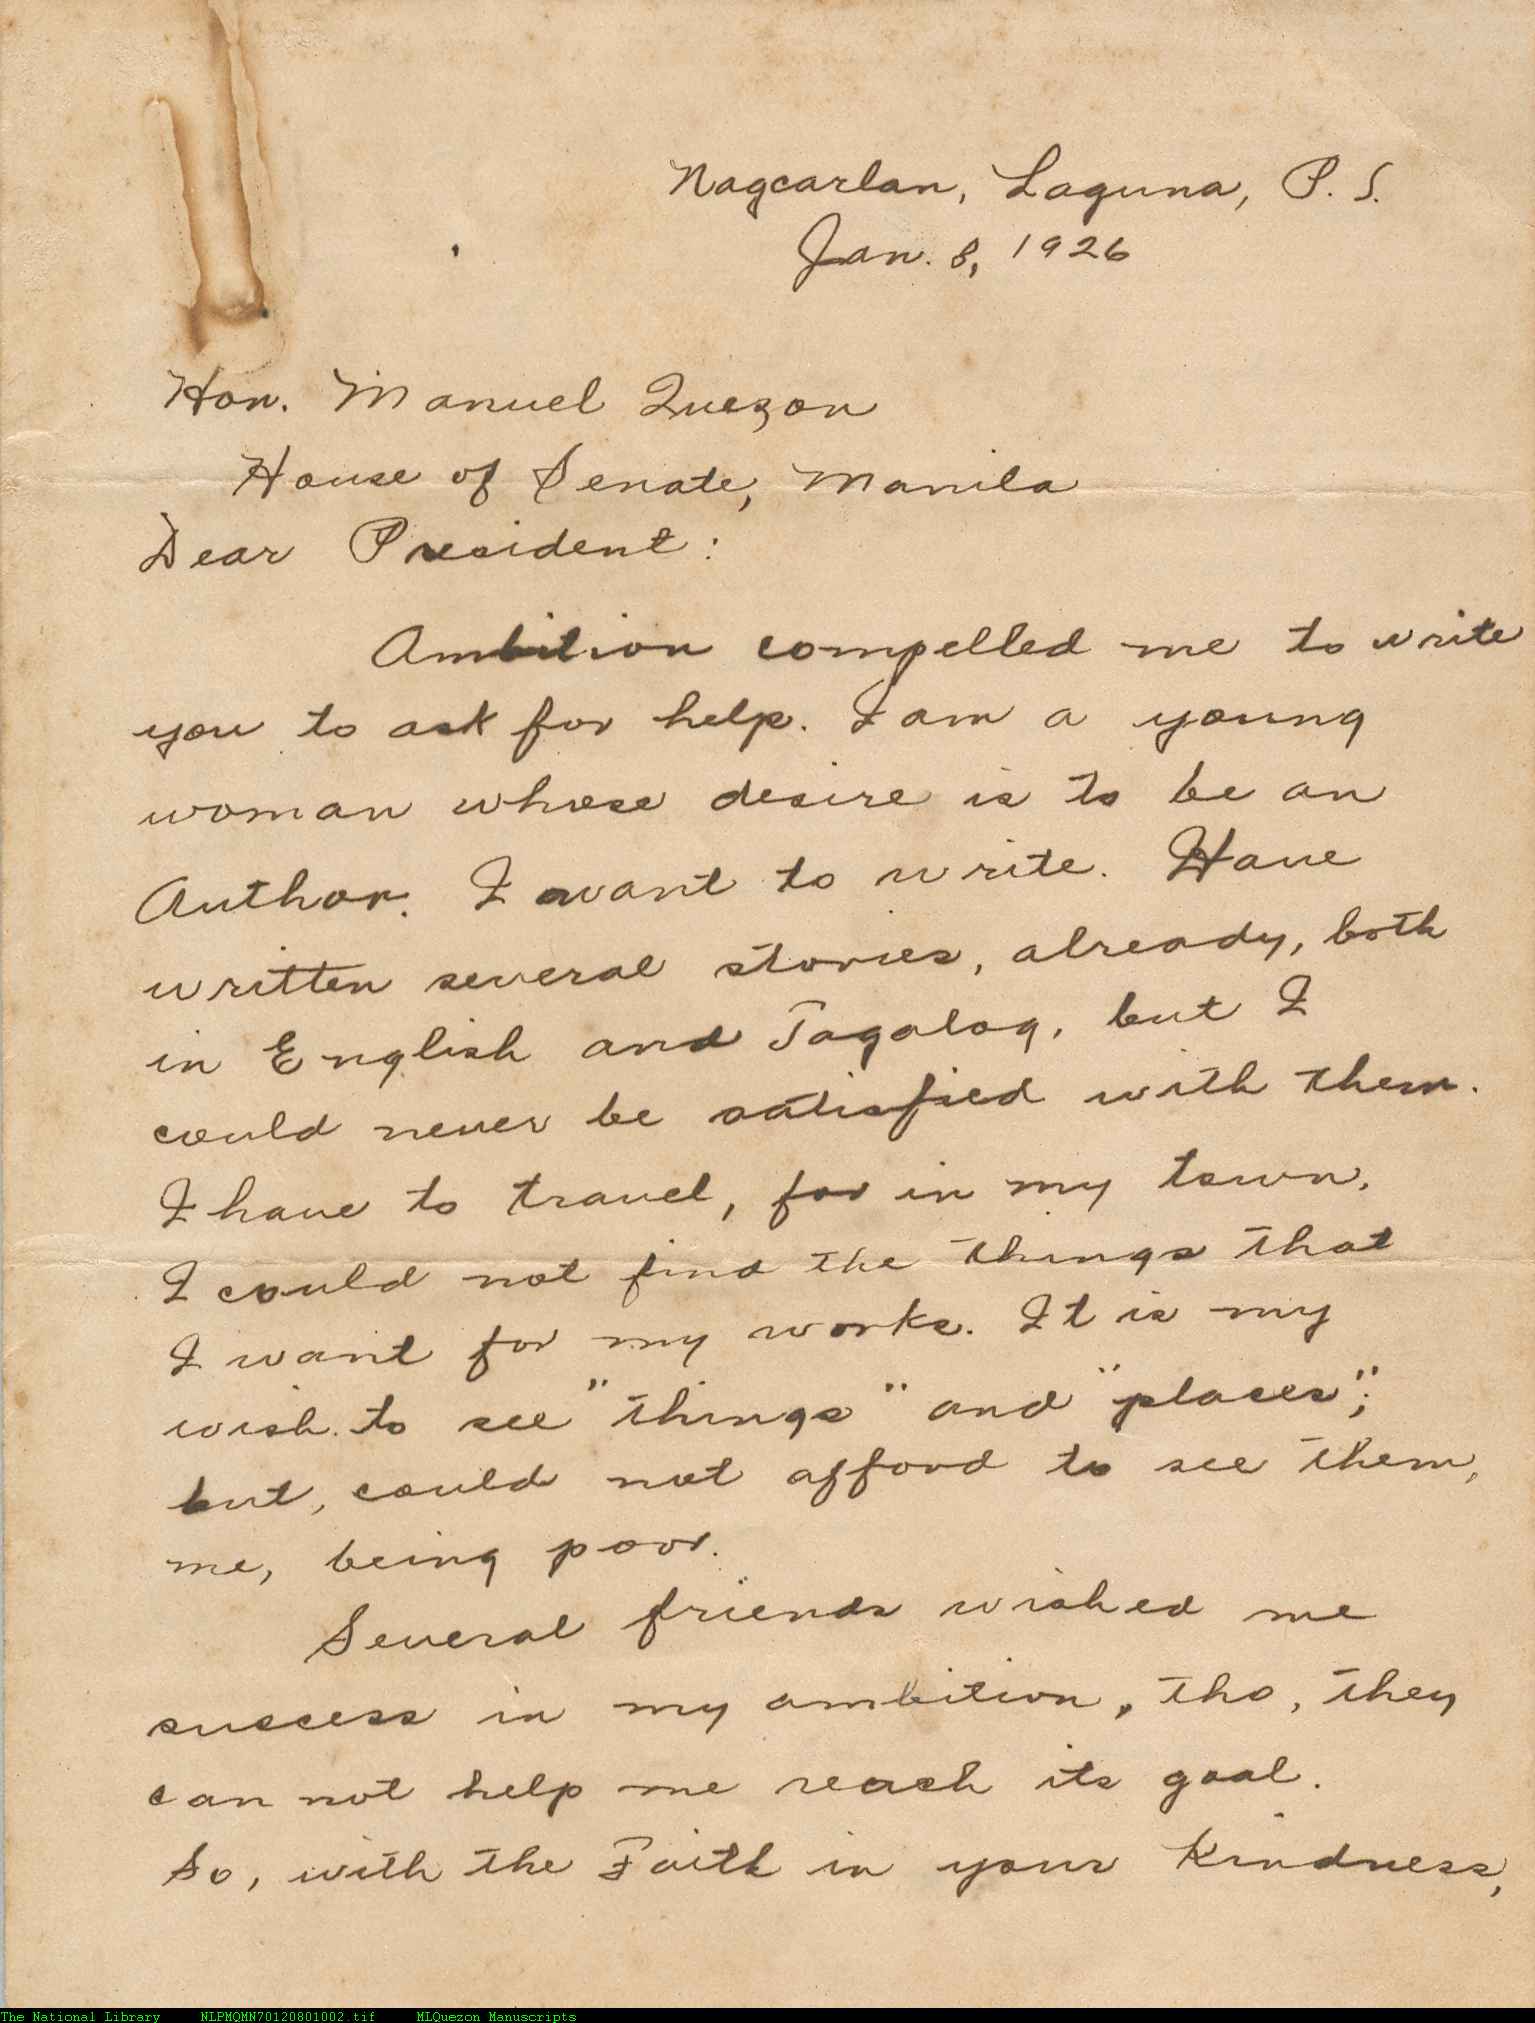 Nagcarlan, Laguna, P. I.
Jan. 8, 1926
Hon. Manuel Quezon
House of Senate, Manila
Dear President:
Ambition compelled me to write
you to ask for help. I am a young
woman whose desire is to be an
Author. I want to write. Have
written several stories, already, both
in English and Tagalog, but I
could never be satisfied with them.
I have to travel, for in my town,
I could not find the things that
I want for my works. It is my
wish to see "things" and "places";
but, could not afford to see them,
me, being poor.
Several friends wished me
success in my ambition, tho, they
can not help me reach its goal.
So, with the Faith in your Kindness,
The National Library NLPMQMN70120801002.tif MLQuezon Manuscripts